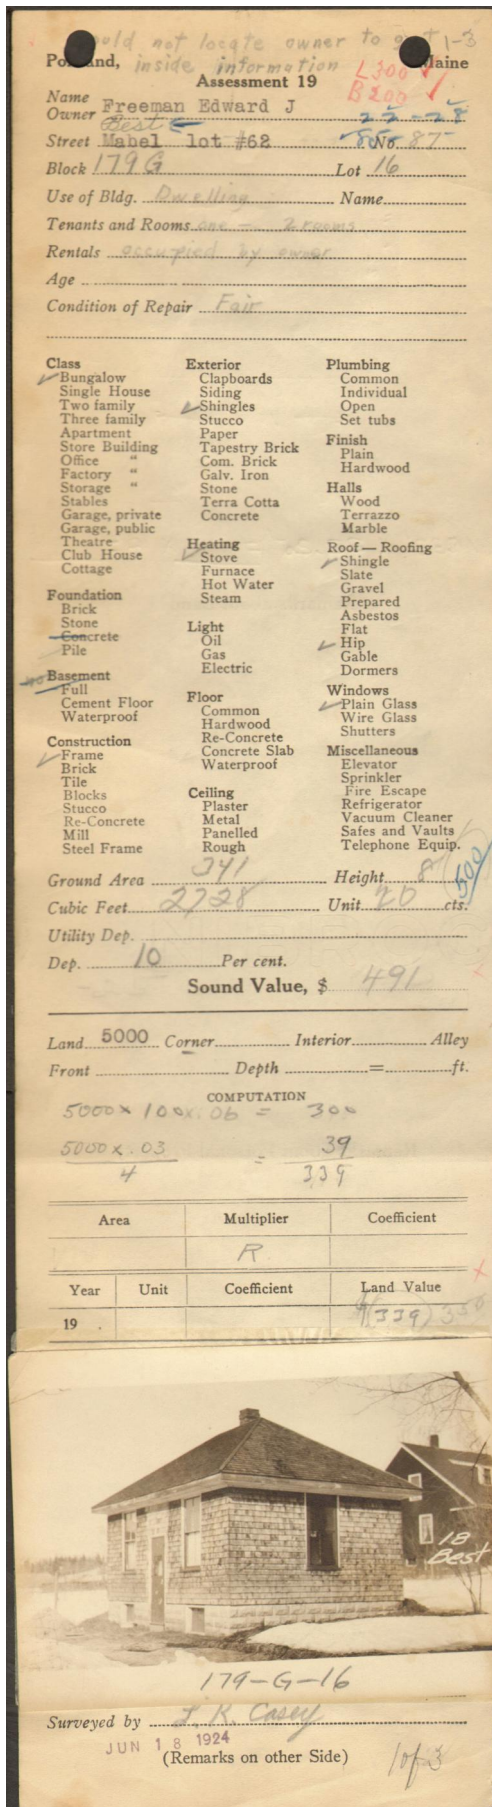 could not locate owner to get 1-3
Portland, inside information Maine
L300
Assessment 19
B200
Name
Owner Freeman Edward J 22-28
Best
Street Mabel lot #62 85 No. 87
Block 179 G Lot 16
Use of Bldg. Dwelling Name
Tenants and Rooms one - 2 rooms
Rentals occupied by owner
Age
Condition of Repair Fair
Class
Bungalow
Single House
Two family
Three family
Apartment
Store Building
Office "
Factory "
Storage "
Stables
Garage, private
Garage, public
Theatre
Club House
Cottage
Foundation
Brick
Stone
Concrete
Pile
no Basement
Full
Cement Floor
Waterproof
Construction
Frame
Brick
Tile
Blocks
Stucco
Re-Concrete
Mill
Steel Frame
Exterior
Clapboards
Siding
Shingles
Stucco
Paper
Tapestry Brick
Com. Brick
Galv. Iron
Stone
Terra Cotta
Concrete
Heating
Stove
Furnace
Hot Water
Steam
Light
Oil
Gas
Electric
Floor
Common
Hardwood
Re-Concrete
Concrete Slab
Waterproof
Ceiling
Plaster
Metal
Panelled
Rough
Plumbing
Common
Individual
Open
Set tubs
Finish
Plain
Hardwood
Halls
Wood
Terrazzo
Marble
Roof — Roofing
Shingle
Slate
Gravel
Prepared
Asbestos
Flat
Hip
Gable
Dormers
Windows
Plain Glass
Wire Glass
Shutters
Miscellaneous
Elevator
Sprinkler
Fire Escape
Refrigerator
Vacuum Cleaner
Safes and Vaults
Telephone Equip.
Ground Area 341 Height 8
500
Cubic Feet 2728 Unit 20 cts.
Utility Dep.
Dep. 10 Per cent.
Sound Value, $ 491
Land 5000 Corner Interior Alley
Front Depth = ft.
COMPUTATION
5000 x 100 x .06 = 300
5000 x .03 = 39
4 339
Area Multiplier Coefficient
R
Year Unit Coefficient Land Value
19 . (339) 350
18
Best
179-G-16
Surveyed by L. K. Casey
JUN 18 1924
(Remarks on other Side) 1 of 3